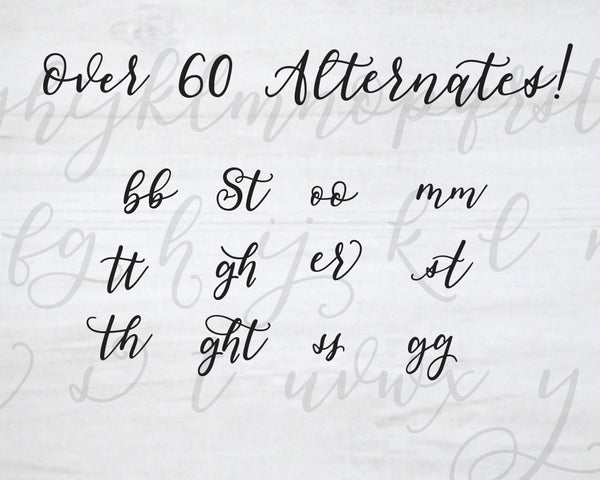 Over 60 Alternates!
ghijklmnopqrst
bb St oo mm
fg h ij k l
tt gh er st
th ght ss gg
s t uvwx y